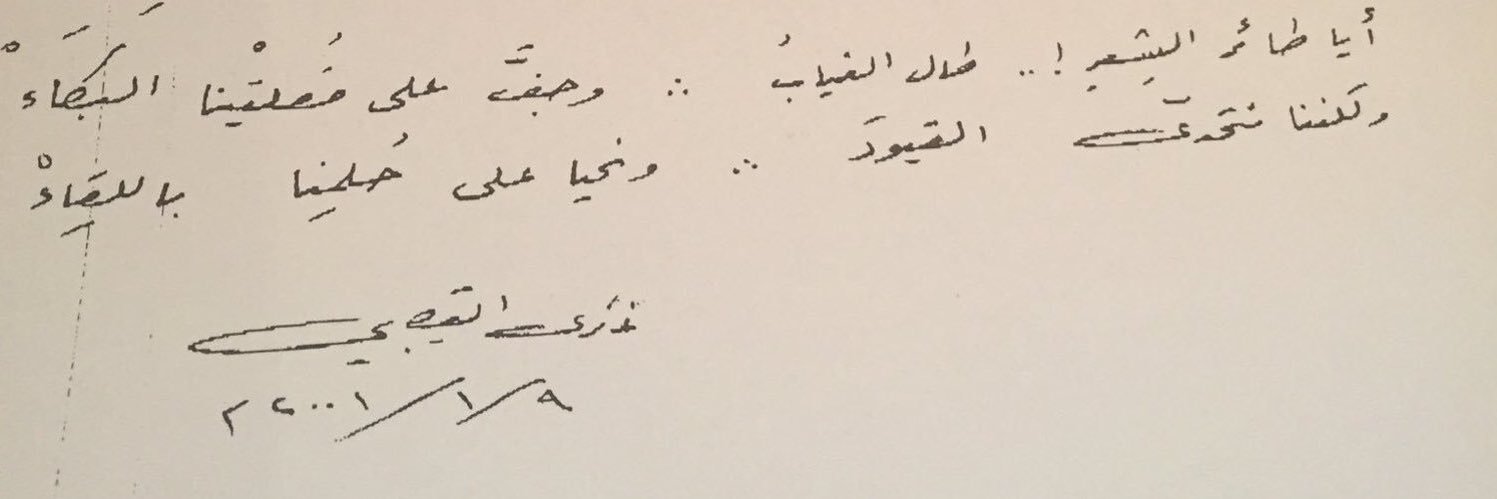 أيا طائر الشِعرِ !.. طال الغيابُ ∴ وجفَّ على مُقلتَيْنا البُكَاءْ
ولكننا نتحدّى القيودَ ∴ ونحيا على حُلمِنا باللقاءْ
ذكرى
٩/١/٢٠٠١م